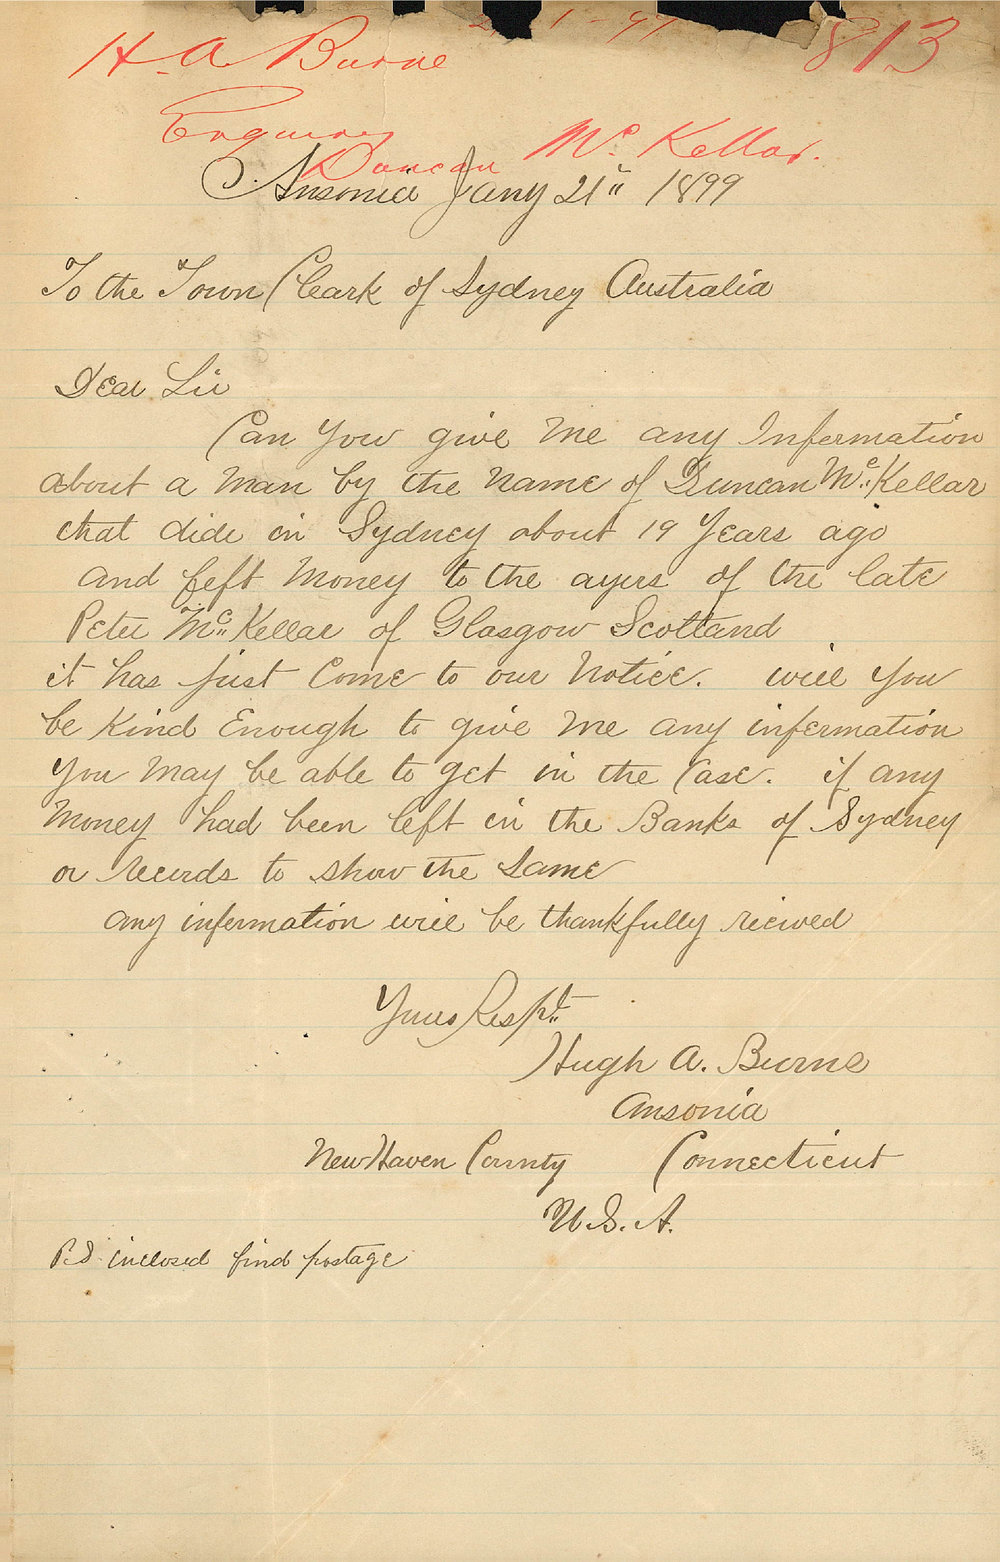 H. A Burne 21-1-99 813
Enquiring
Duncan Mc Kellar.
Ansonia Jany 21" 1899
To the Town Cleark of Sydney Australia
Dear Sir
Can You give Me any Information
about a Man by the Name of Duncan Mc Kellar
that dide in Sydney about 19 Years ago
and left Money to the ayers of the late
Peter Mc Kellar of Glasgow Scotland
it has just Come to our Notice. will You
be Kind Enough to give Me any information
You May be able to get in the Case. if any
Money had been left in the Banks of Sydney
or records to show the Same
any information will be thankfully recived
Yours Respt
Hugh A. Burne
Ansonia
New Haven County Connecticut
U. S. A.
P.S. inclosed find postage